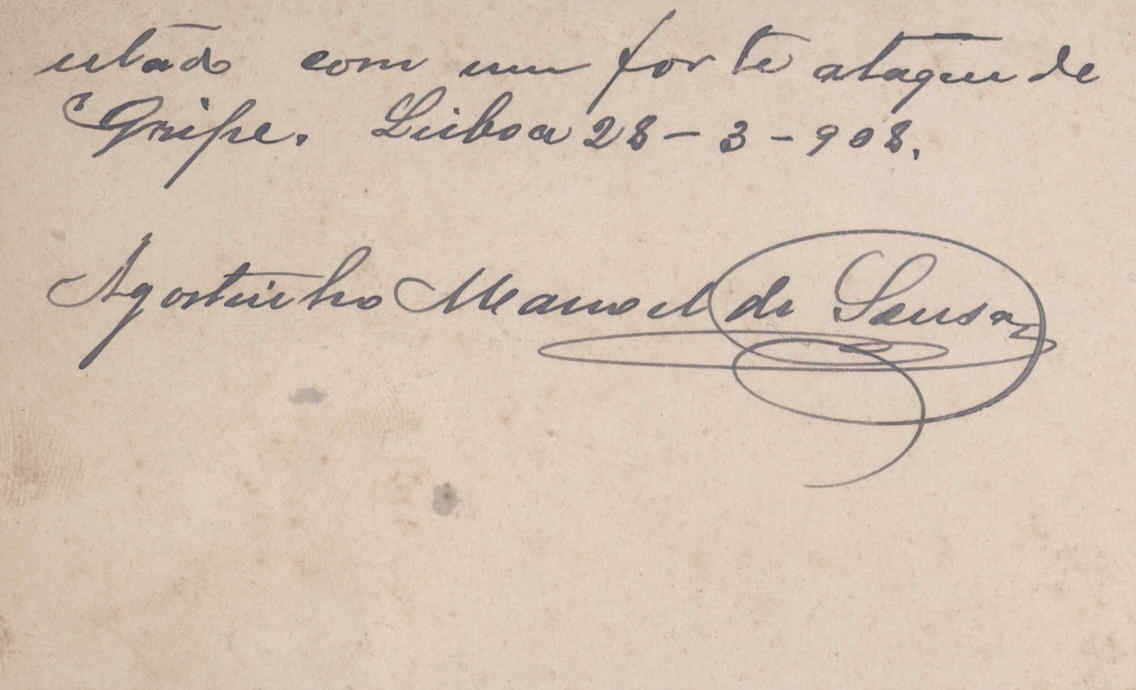 estado com um forte ataque de
Gripe. Lisboa 28-3-908.
Agostinho Manoel de Sousa